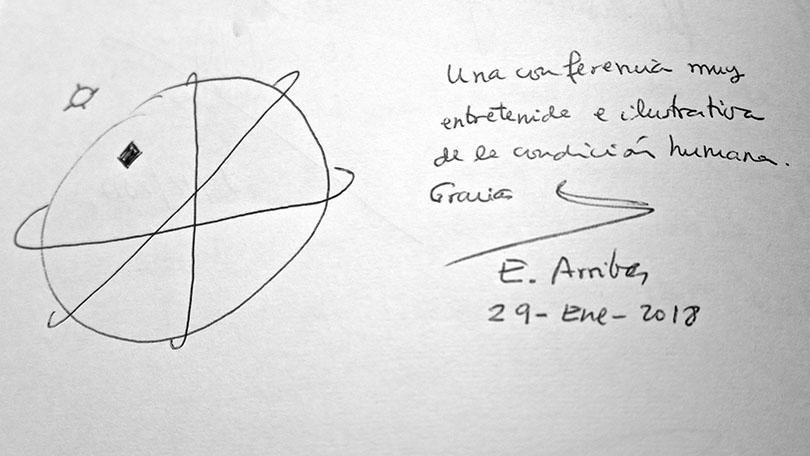 Una conferencia muy
entretenida e ilustrativa
de la condición humana.
Gracias
E. Arribas
29-Ene-2018